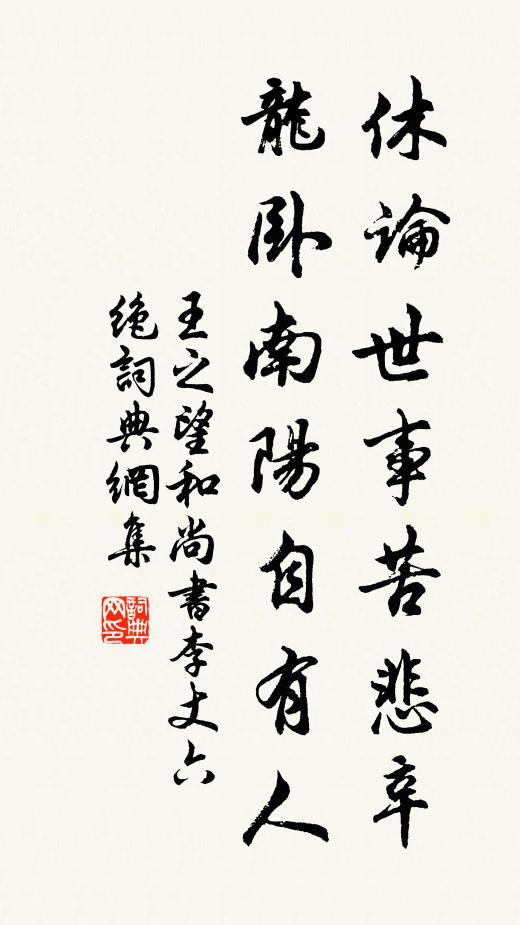 休論世事苦悲辛
龍卧南陽自有人
王之望和尚書李丈六
絶詞典網集
詞典网印